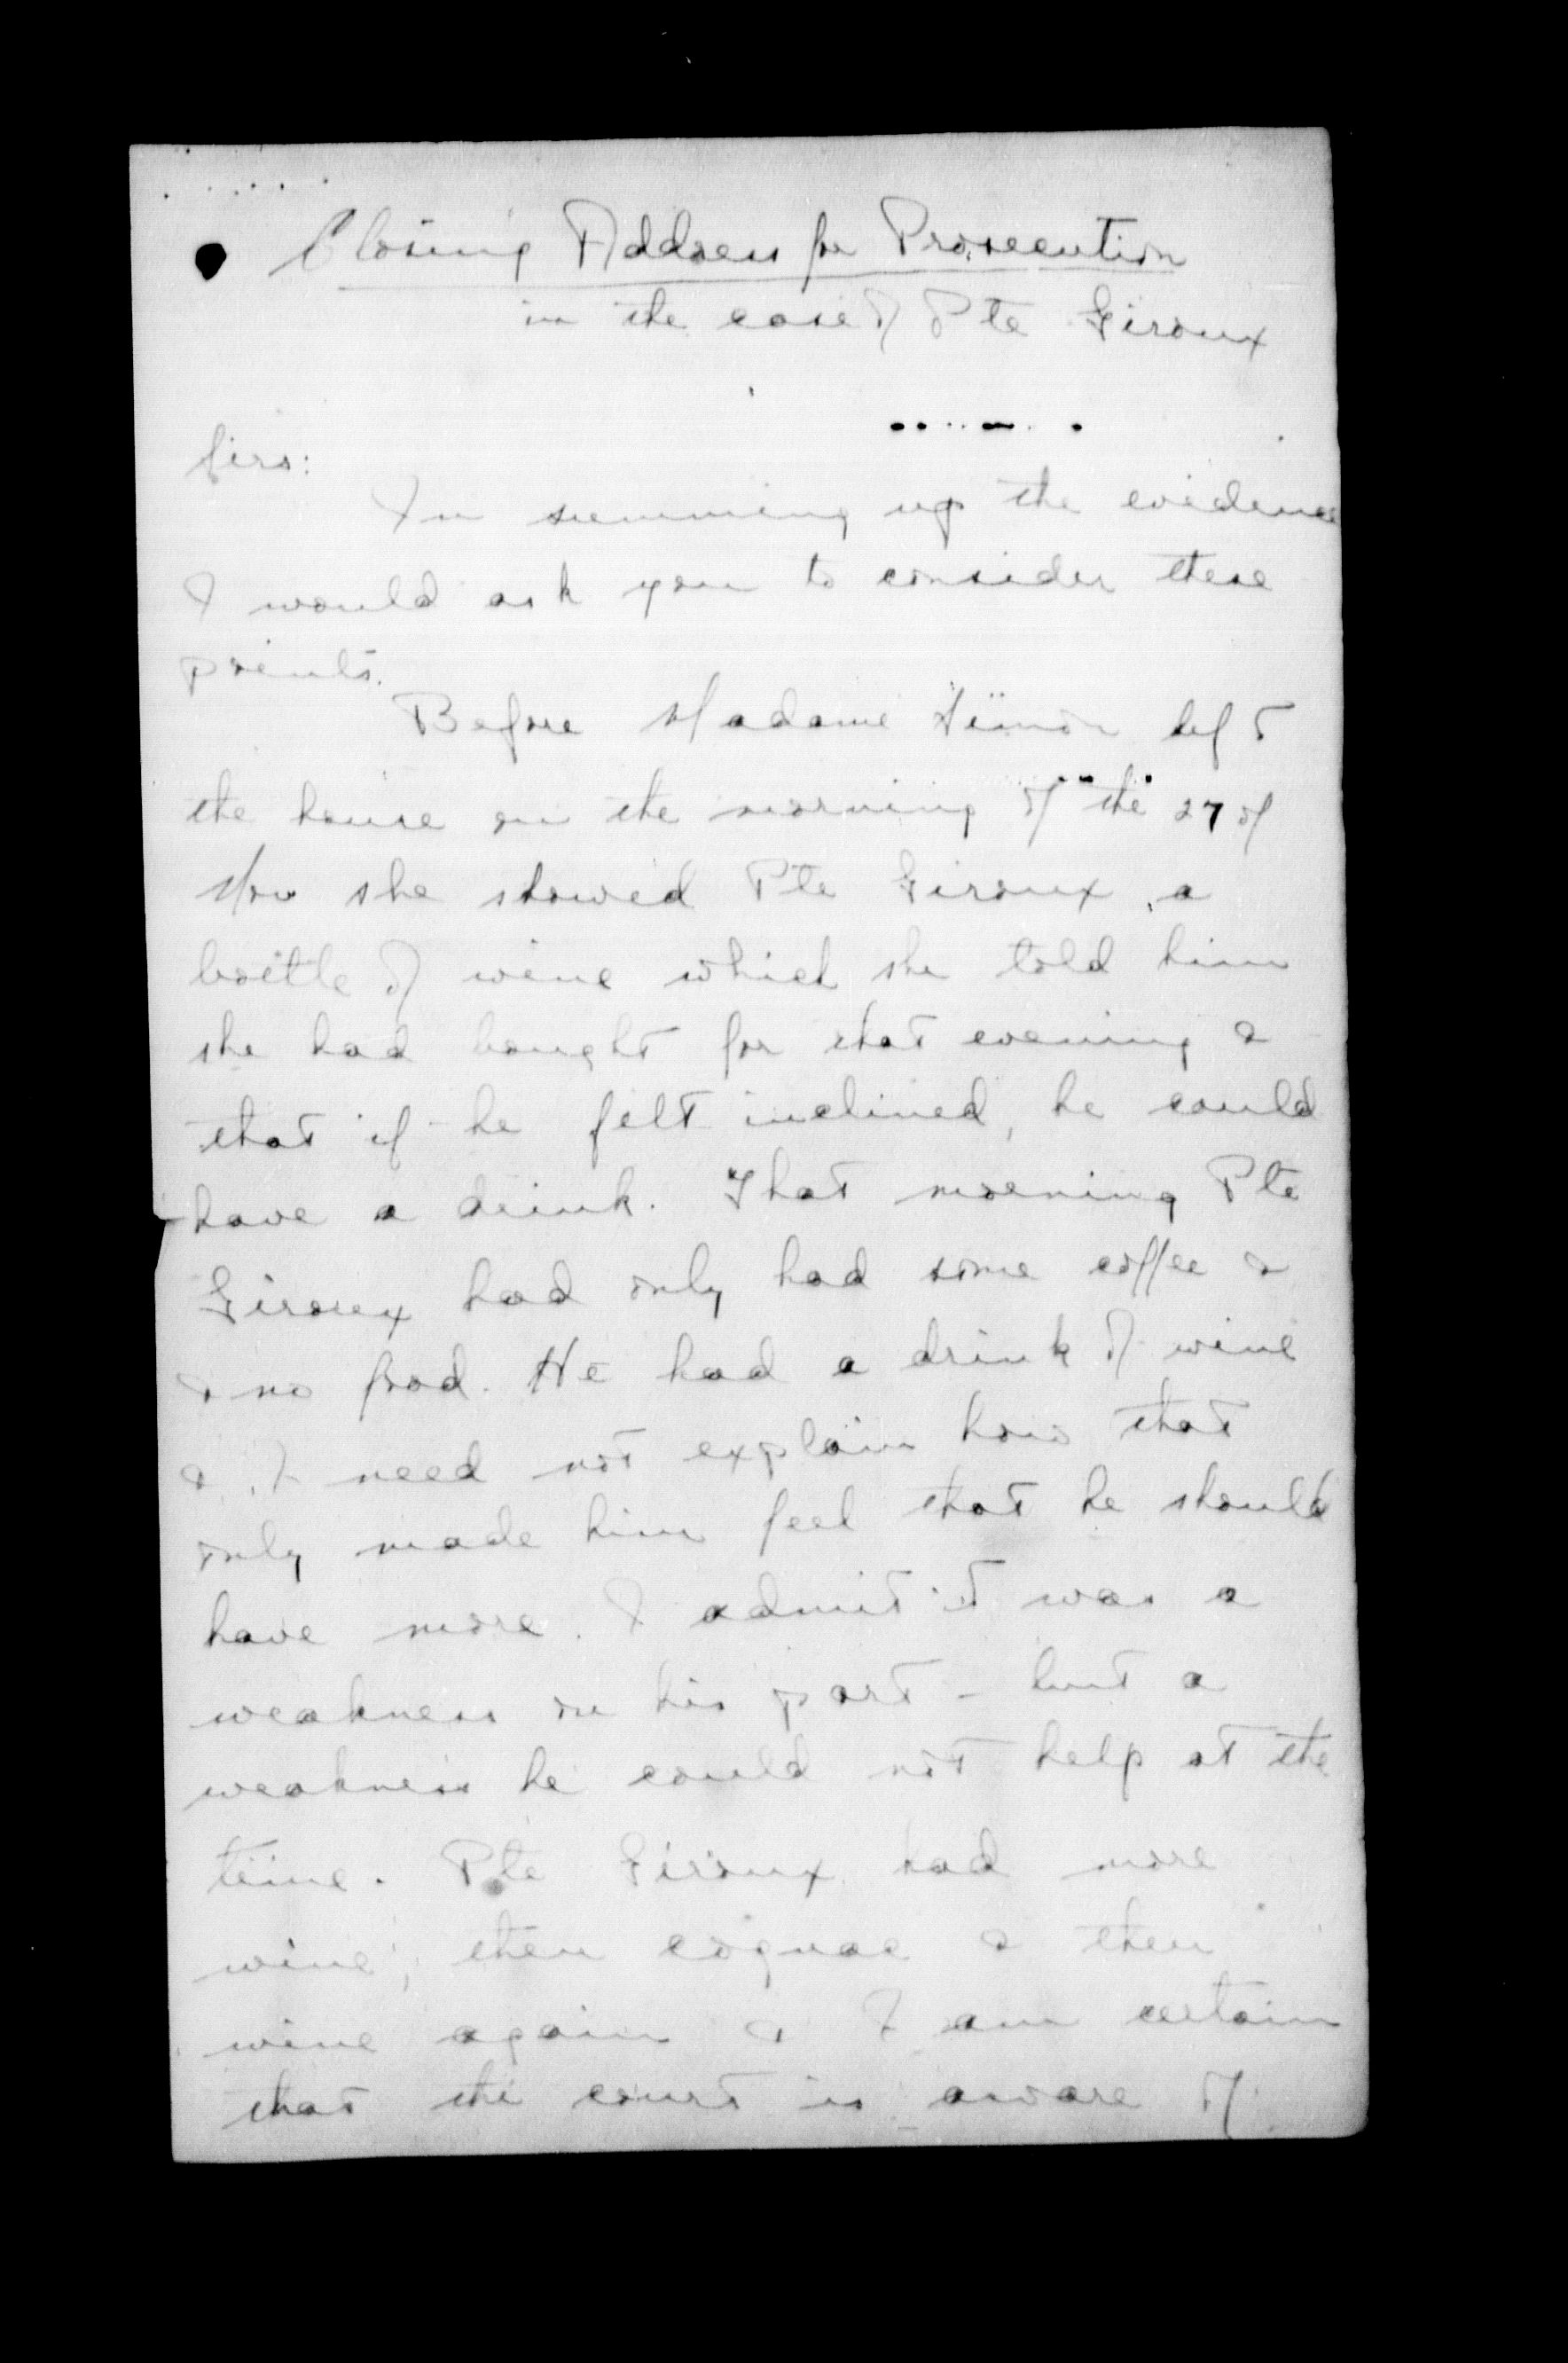 Closing Address for Prosecution
in the case of Pte Giroux
Sirs:
In summing up the evidence
I would ask you to consider these
points.
Before Madame left
the house on the morning of the 27 of
Nov she showed Pte Giroux a
bottle of wine which she told him
she had bought for that evening &
that if he felt inclined, he could
have a drink. That morning Pte
Giroux had only had some coffee &
& no food. He had a drink of wine
& I need not explain how that
only made him feel that he should
have more. I admit it was a
weakness on his part - but a
weakness he could not help at the
time. Pte Giroux had more
wine, then cognac & then
wine again & I am certain
that the court is aware of